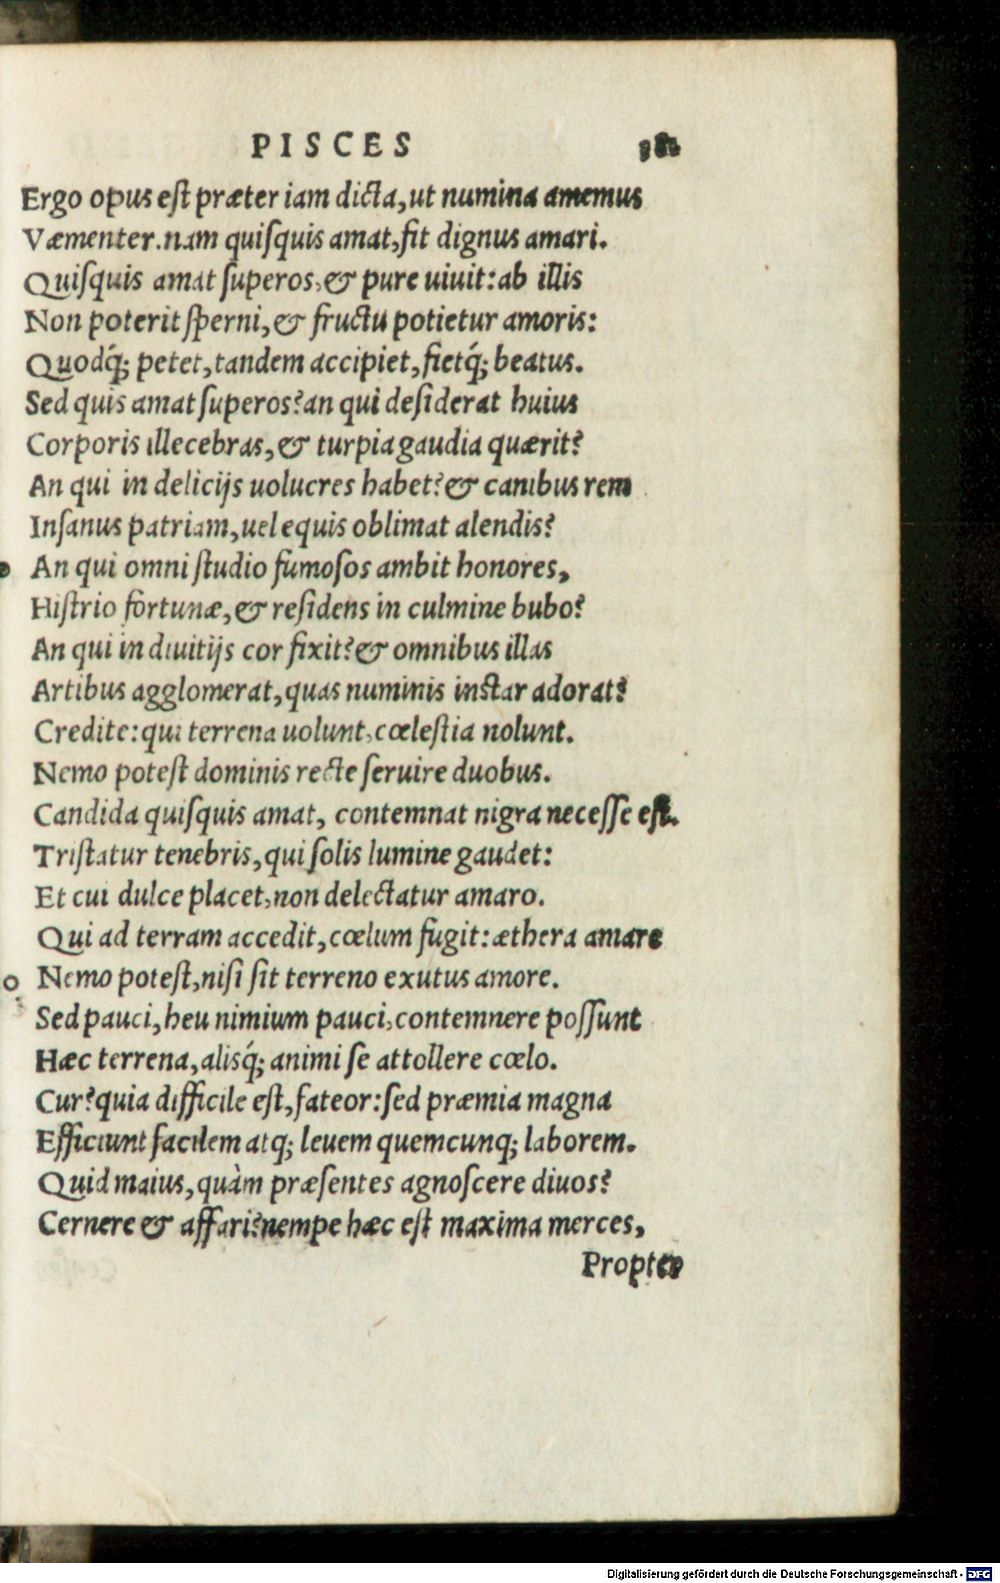 PISCES
Ergo opus eſt præter iam dicta, ut numina amemus
Væmenter. nam quiſquis amat, fit dignus amari.
Quiſquis amat ſuperos, & pure uiuit: ab illis
Non poterit ſperni, & fructu potietur amoris:
Quodq́; petet, tandem accipiet, fietq́; beatus.
Sed quis amat ſuperos? an qui deſiderat huius
Corporis illecebras, & turpia gaudia quærit?
An qui in delicijs uolucres habet? & canibus rem
Inſanus patriam, uel equis oblimat alendis?
An qui omni ſtudio fumoſos ambit honores,
Hiſtrio fortunæ, & reſidens in culmine bubo?
An qui in diuitijs cor fixit? & omnibus illas
Artibus agglomerat, quas numinis inſtar adorat?
Credite: qui terrena uolunt, cœleſtia nolunt.
Nemo poteſt dominis recte ſeruire duobus.
Candida quiſquis amat, contemnat nigra neceſſe eſt.
Triſtatur tenebris, qui ſolis lumine gaudet:
Et cui dulce placet, non delectatur amaro.
Qui ad terram accedit, cœlum fugit: æthera amare
Nemo poteſt, niſi ſit terreno exutus amore.
Sed pauci, heu nimium pauci, contemnere poſſunt
Hæc terrena, alisq́; animi ſe attollere cœlo.
Cur? quia difficile eſt, fateor: ſed præmia magna
Efficiunt facilem atq; leuem quemcunq; laborem.
Quid maius, quàm præſentes agnoſcere diuos?
Cernere & affari? nempe hæc eſt maxima merces,
Propter
Digitalisierung gefördert durch die Deutsche Forschungsgemeinschaft - DFG